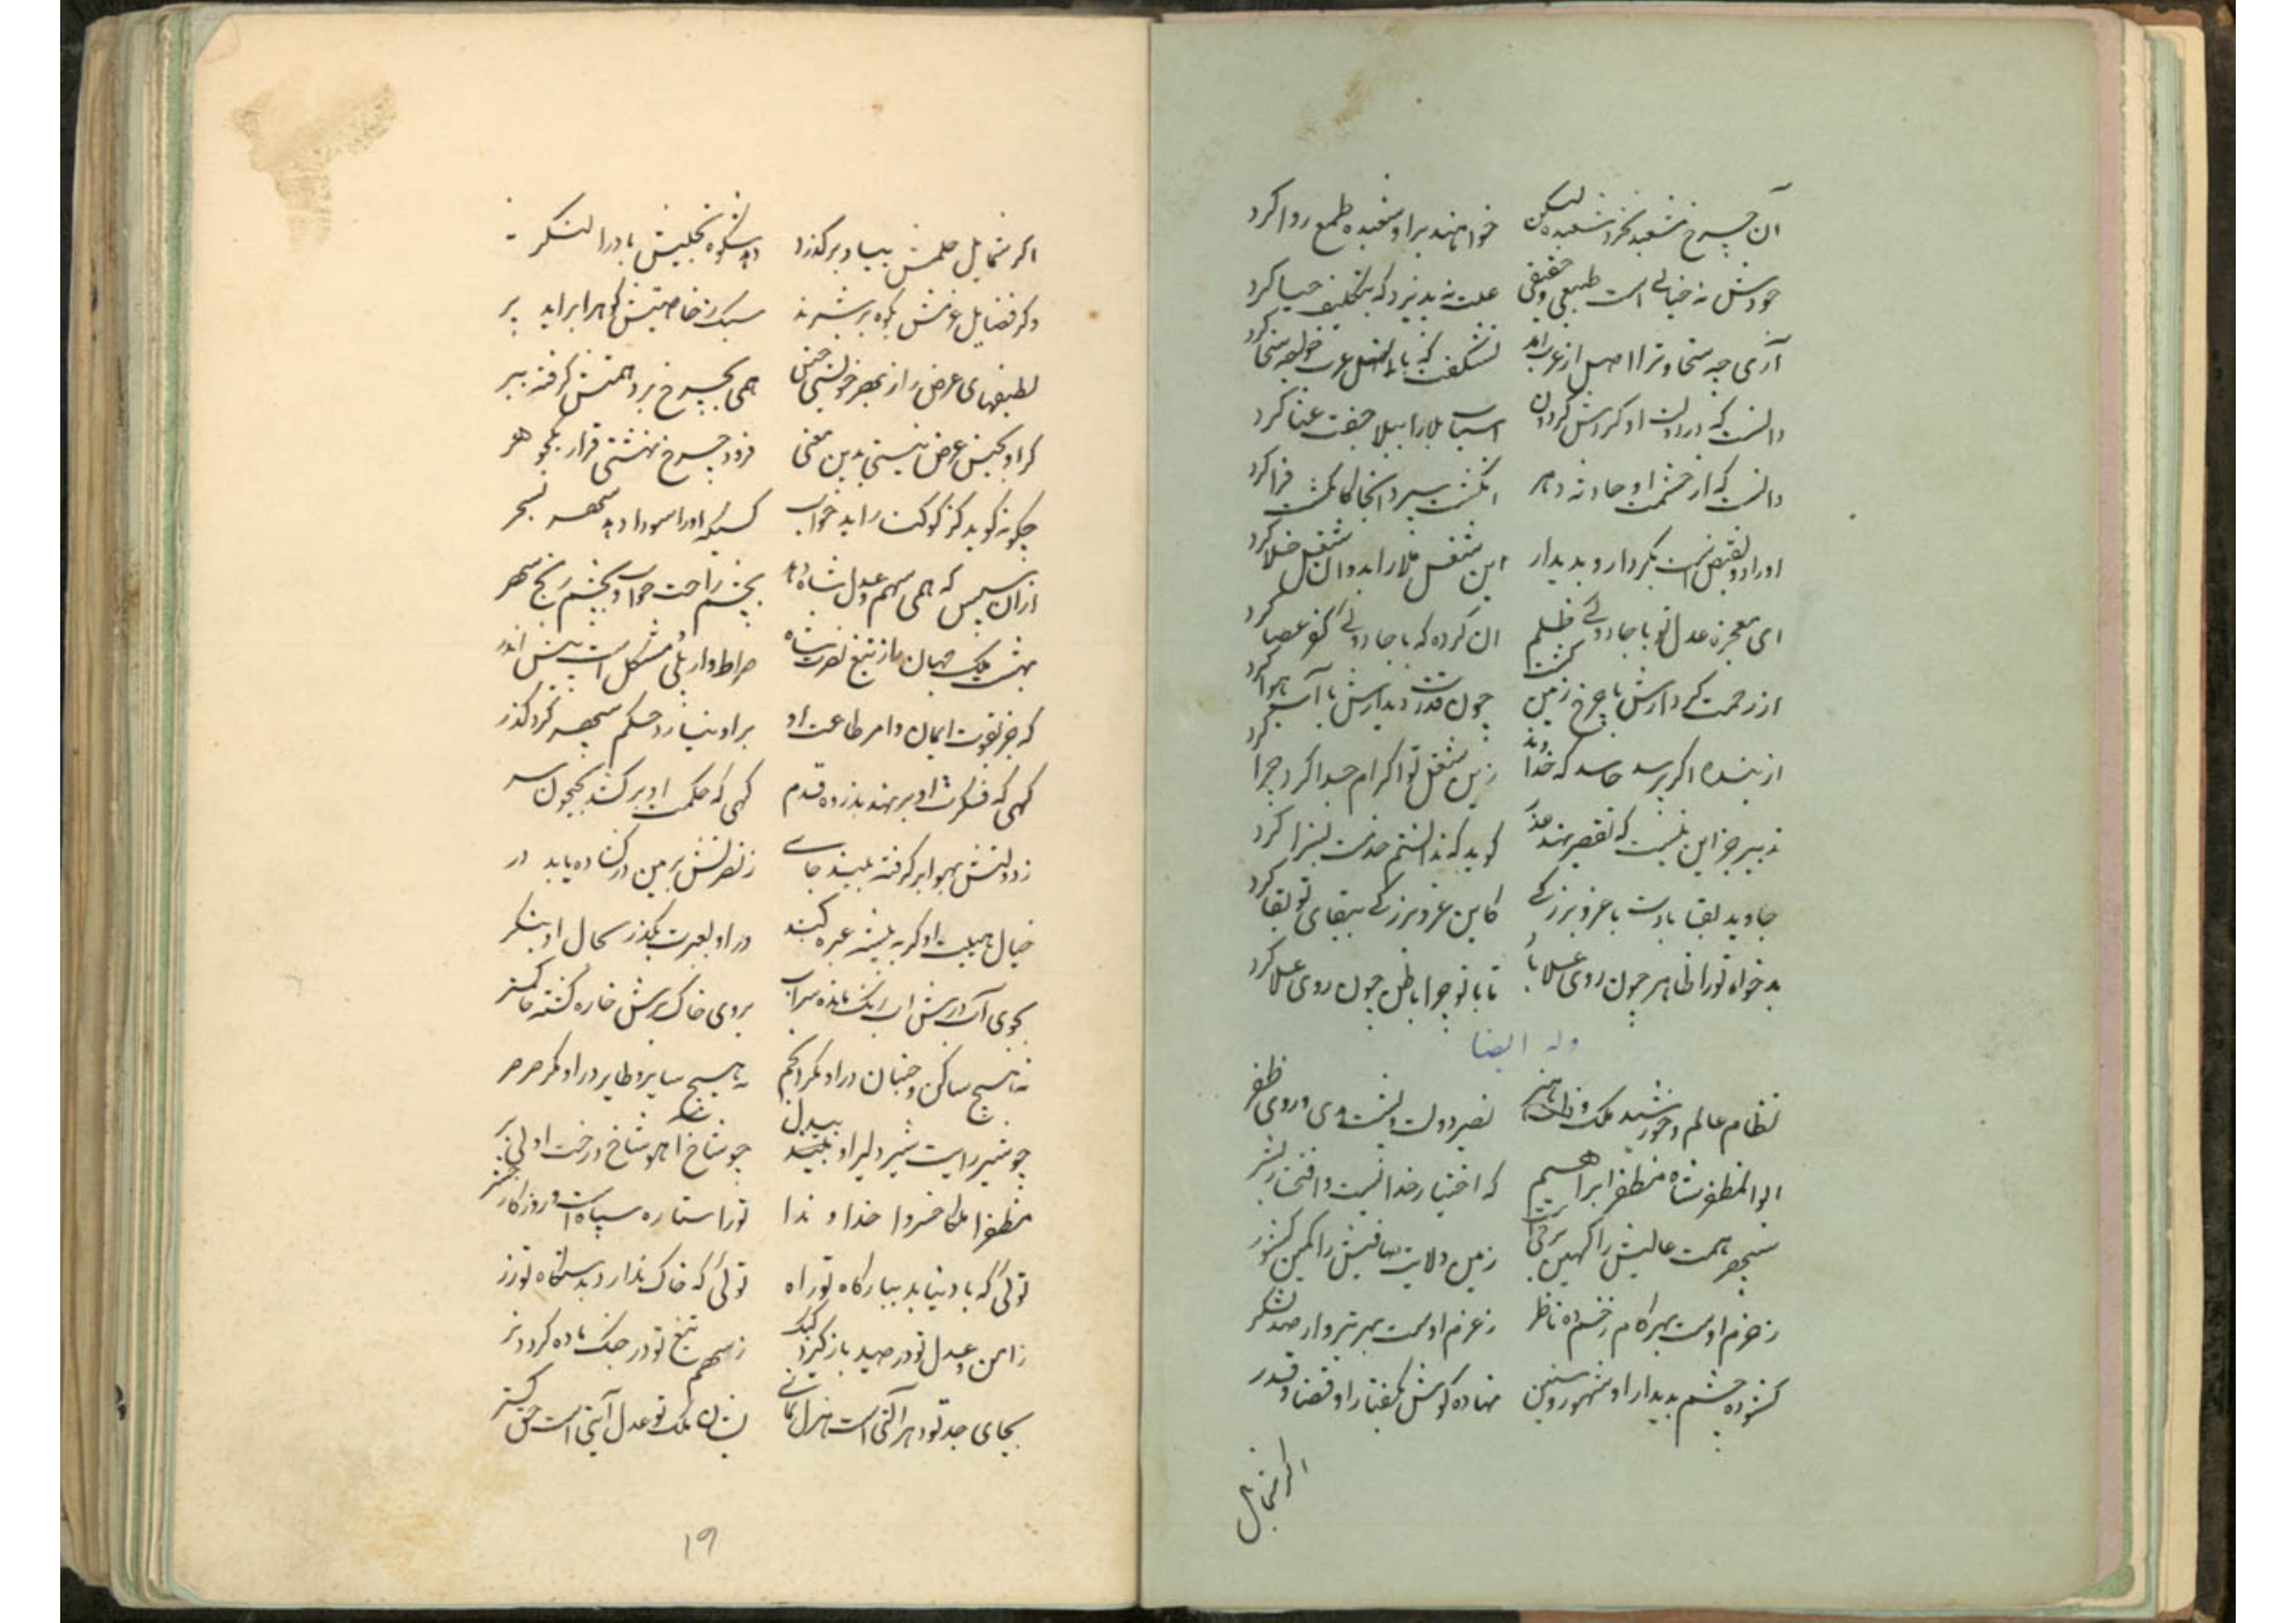 آن چرخ مشعبد نخرد شعبده لیکن خواهند برا و شعبده طمع روا کرد
خودش نه خیالی است طبیعی و حقیقی علت نه پذیرد که بتکلیف حیا کرد
آری چه سخا و ترا اصل از عرب اند نشکفت که با اصل عرب خواجه سخا کرد
دانست که در دولت او گردش گردون اسباب بلا را ببلا جفت عنا کرد
دانست که از خشمت او حادثه دهر انگشت سپرد انجا کانگشت فرا کرد
اورا دو نقیض است بکردار و بدیدار این شغل ملا را بد و ان شغل خلا کرد
ای معجزه عدل تو با جادوئے ظلم ان کرده که با جادوئے کفو عصا کرد
از زحمت کردارش با چرخ زمین گشت چون قدرت دیدارش با آب هوا کرد
از بنده اگر پرسد حاسد که خداوند زین شغل تو اکرام جدا کرد چرا کرد
تدبیر جز این نیست که تقصیر نهد عذر گوید که ندانستم خدمت بسزا کرد
جاوید بقا بادت با عز و بزرگے کاین عز و بزرگے ببقای تو بقا کرد
بدخواه تو را ظاهر چون روی عسلا با تا با تو چرا باطن چون روی عسلا کرد
وله ایضا
نظام عالم و خورشید ملک و ذات هنر نصیر دولت و پشت هدی و روی ظفر
ابوالمظفر شاه مظفر ابراهیم که اختیار خدائست و افتخار بشر
سپهر همت عالیش را کهین مرقات زمین ولایت صافیش را کمین کشور
ز حزم اوست بهر گام رفته ده ناظر ز عزم اوست بهر تیروار صد لشکر
گشوده چشم بدیدار او شهور و سنین نهاده گوش بگفتار او قضا و قدر
اکر شمایل
اکر شمایل حلمش بباد برگذرد دهد شکوه تجلیش باد را لنگر
وکر فضایل عزمش بکوه برشمرند سبک ز خاصیتش کوه را براید پر
لطیفهای عرض را ز بهر خویشی من همی بچرخ برد همتش گرفته ببر
گر او بجنس عرض نیستی بدین معنی فرود چرخ نهشتی قرار یک جوهر
چگونه گوید کز کوکب راید خواب کسیکه او را سودا دهد سحهر بسحر
ازان سپس که همی سهم عدل شاه دهد بچشم راحت خواب و بچشم رنج سهر
بهشت ملک جهان ماز تیغ نصرت شاه صراط وار پلی مشکل است پیش اندر
که جز بقوت ایمان و امر طاعت او بر او نیارد حکم سپهر کرد گذر
گهی که فکرت او برنهد بذروه قدم گهی که حکمت او برکشد بجیحون سر
ز دولتش بهوا بر گرفته بیند جای ز نصرتش بزمین در گشاده یابد در
خیال هیبت او گر به بیشه عبره کند در او بعبرت بگذر بحال او بنگر
بجوی آب درش آب رنگ مانده سراب بروی خاک برش خاره گشته خاکستر
نه هیچ ساکن و جنبان در او مگر انجم نه هیچ سایر و طایر در او مگر صرصر
چو شیر رایت شیر دلیر او بیدل چو شاخ آهو شاخ درخت او بی بر
مظفرا ملکا خسروا خداوندا تو را ستاره سپاه است و روزگار حشر
توئی که باد نیابد ببارگاه تو راه توئی که خاک ندارد بدستگاه تو زر
ز امن و عدل تو در صید باز گیرد کبک ز سهم تیغ تو در جنگ ماده گردد نر
بجای جد تو دهر آلتی است هزل نمای بشان ملک تو عدل آیتی است حق گستر
۱۹